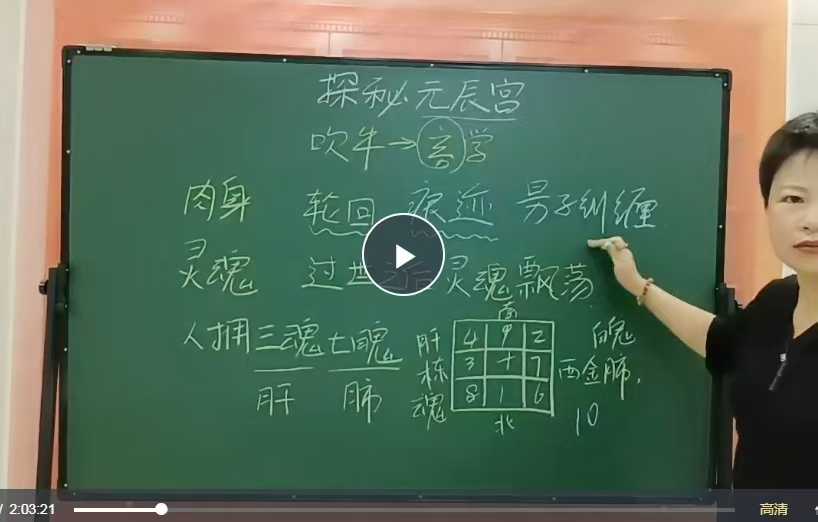 探秘元辰宫
吹牛→玄学
肉身 轮回 痕迹 量子纠缠
灵魂 过世之后灵魂飘荡
人拥三魂七魄
肝 肺
南
肝 4 9 2 白魄
3 7 西金肺.
魂 8 1 6 10
北
2:03:21
高清